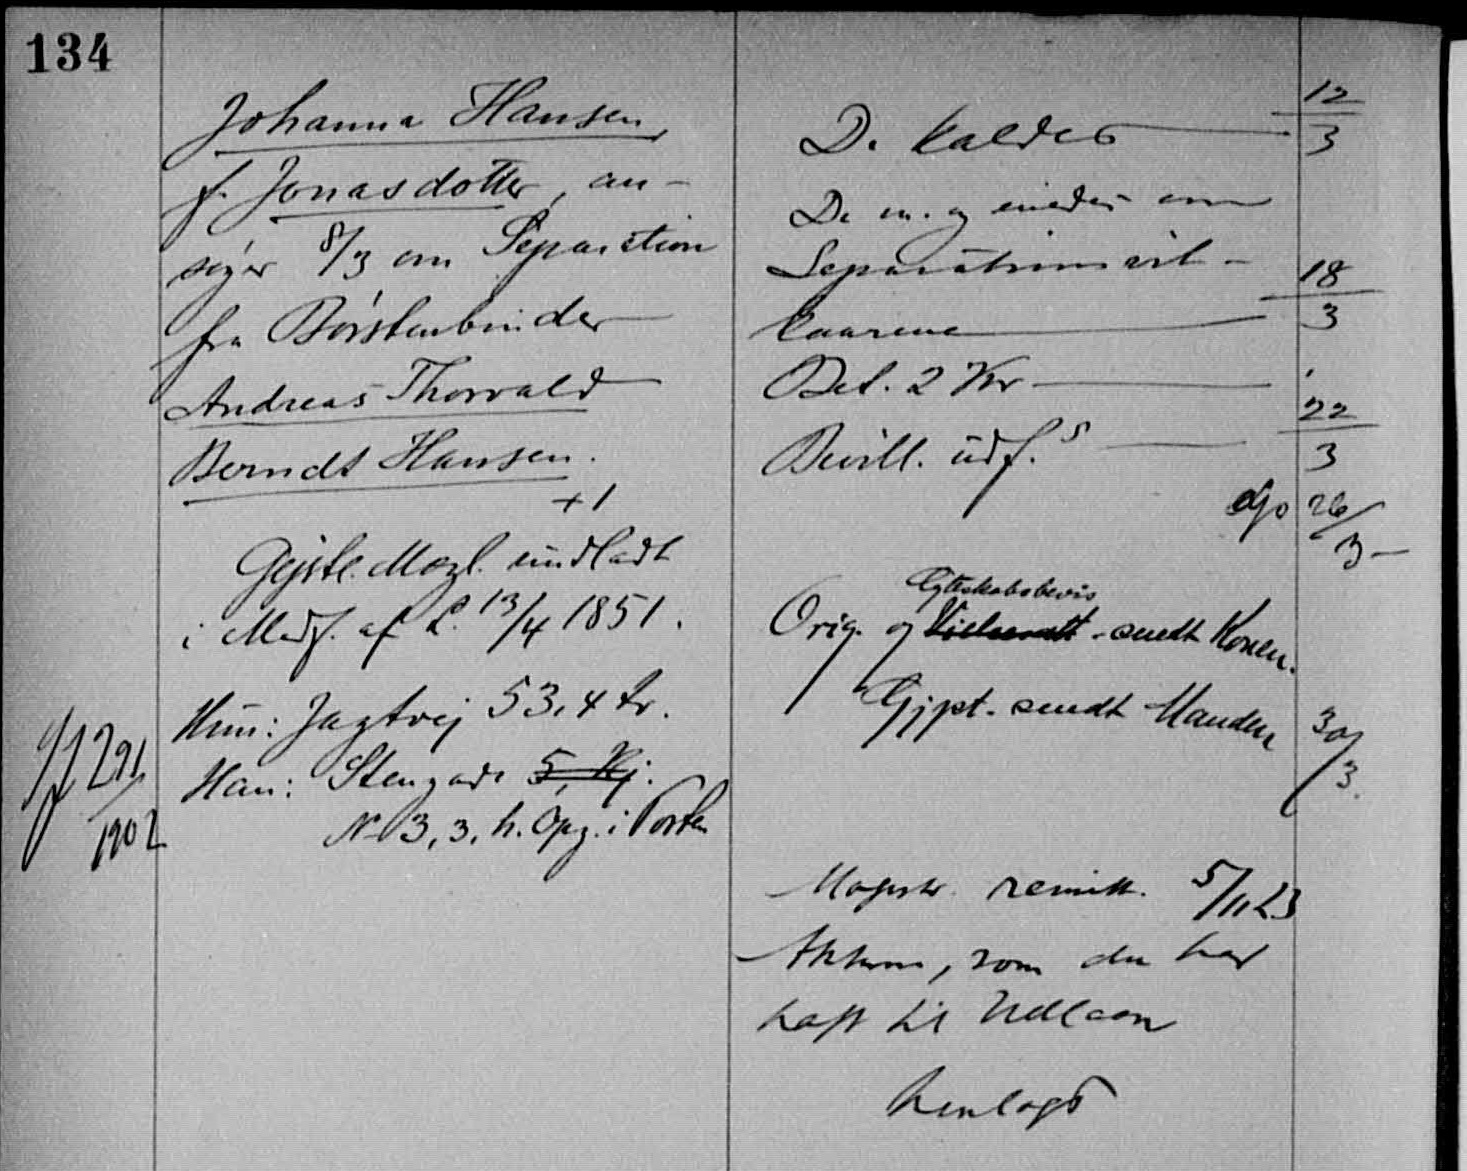 134
Johanna Hansen,
f. Jonasdotter, an-
søger 8/3 om Separation
fra Børstenbinder
Andreas Thorvald
Berndt Hansen.
+1
Gejstl. Mægl. undladt
i Medf. af L. 13/4 1851.
Hun: Jagtvej 53, 4 Sr.
Han: Stengade 5, Kj.
No 3, 3, h. Opg. i Porten
291/1902
D. kaldes 12/3
De m. og enedes om
Separationsvil- 18
kaarene 3
Bet. 2 Kr
Bevill. udf.s 22/3
Exp 26/3
Ægteskabsbevis
Orig. og Vielsesatt. sendt Konen.
Gjpt. sendt Manden 30/3.
Magistr. remitt. 5/11 23
Akterne, som den har
haft til Udlaan
henlagt